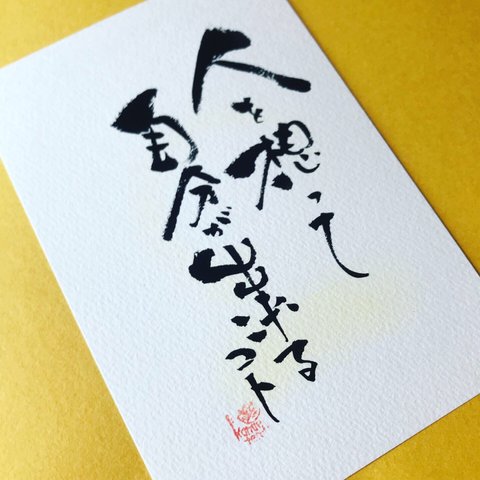 人を想って
自分が出来る
コト